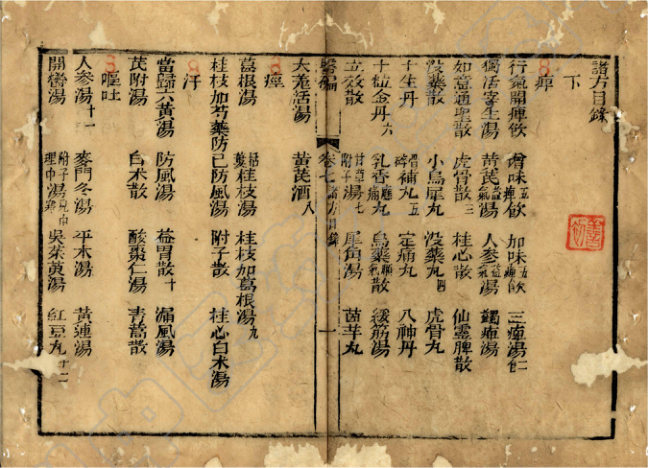 諸方目錄
下
痺
行氣開痺飲 增味五痺飲 加味五痺飲 三痺湯二
獨活寄生湯 黃芪益氣湯 人參益氣湯 蠲痺湯
如意通聖散 虎骨散三 桂心散 仙靈脾散
沒藥散 小烏犀丸 沒藥丸四 虎骨丸
十生丹 骨碎補丸五 定痛丸 八神丹
十位金丹六 乳香應痛丸 烏藥順氣散 緩筋湯
立效散 甘草附子湯七 犀角湯 茵芋丸
醫編 卷七 諸方目錄 一
大羌活湯 黃芪酒八
痙
葛根湯 桂枝湯 桂枝加葛根湯九
桂枝加芍藥防已防風湯 附子散 桂心白朮湯
汗
當歸六黃湯 防風湯 益胃散十 漏風湯
芪附湯 白朮散 酸棗仁湯 青蒿散
嘔吐
人參湯十一 麥門冬湯 平木湯 黃蓮湯
開 湯 附子理中湯 吳茱萸湯 紅豆丸十二